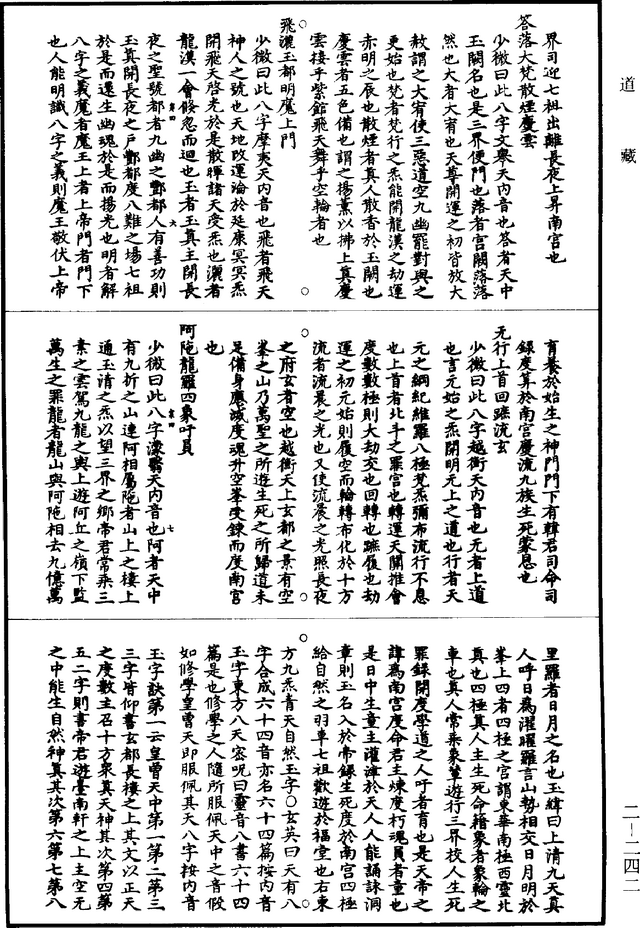 道藏
界司迎七祖出離長夜上昇南宮也
答落大梵散煙慶雲
少微曰此八字文舉天內音也答者天中
玉闕名也是三界便門也落者宮闕落落
然也大者大宥也天尊開運之初皆放大
赦謂之大宥使三惡道空九幽罷對與之
更始也梵者梵行之炁能開龍漢之劫運
赤明之辰也散煙者真人散香於玉闕也
慶雲者五色備也謂之揚薰以拂上真慶
雲接乎紫館飛天舞乎空輪者也
飛灑玉都明魔上門
少微曰此八字摩夷天內音也飛者飛天
神人之號也天地改運淪於延康冥冥炁
開飛天啓光於是散暉諸天受炁也灑者
龍漢一會倏忽而迴也玉者玉真主開長
夜之聖號都者九幽之酆都人有善功則
第四 六
玉真開長夜之戶酆都度八難之場七祖
於是而還生幽魂於是而揚光也明者解
八字之義魔者魔王上者上帝門者門下
也人能明識八字之義則魔王敬伏上帝
育養於始生之神門門下有韓君司命司
錄度算於南宮慶流九族生死蒙恩也
无行上首回蹠流玄
少微曰此八字越衡天內音也无者上道
也言元始之炁開明无上之道也行者天
元之綱紀維羅八極梵炁彌布流行不息
也上首者北斗之罪宮也轉運天關推會
度數數極則大劫交也回轉也蹠履也劫
運之初元始則履空而輪轉布化於十方
流者流晨之光也又使流晨之光照長夜
之府玄者空也越衡天上玄都之景有空
峯之山乃萬聖之所遊生死之所歸道未
足備身應滅度魂升空峯受鍊而度南宮
也
阿陁龍羅四象吁員
少微曰此八字濛翳天內音也阿者天中
第四 七
有九折之山連阿相屬陁者山上之樓上
通玉清之炁以望三界之鄉帝君常乘三
素之雲駕九龍之輿上遊阿丘之嶺下監
萬生之罪龍者龍山與阿陁相去九億萬
里羅者日月之名也玉緯曰上清九天真
人呼日為濯曜羅言山勢相交日月明於
峯上四者四極之宮謂東華南極西靈北
真也四極真人主生死命籍象者象輪之
車也真人常乘象輦遊行三界校人生死
罪錄開度學道之人吁者有也是天帝之
諱為南宮度命君主煉度朽魂員者童也
是日中生童主灌津於天人人能誦詠洞
章則玉名入於帝錄生死度於南宮四極
給自然之羽車七祖歡遊於福堂也右東
方九炁青天自然玉字○玄英曰天有八
字合成六十四音亦名六十四篇按內音
玉字東方八天密呪曰靈音八書六十四
篇是也修學之人隨所服佩天中之音假
如修學皇曾天即服佩其天八字按內音
玉字訣第一云皇曾天中第一第二第三
三字皆仰書玄都長樓之上其文以正天
之度數主召十方眾真天神其次第四第
五二字則書帝君遊臺南軒之上主空无
之中能生自然神真其次第六第七第八
二—二四二